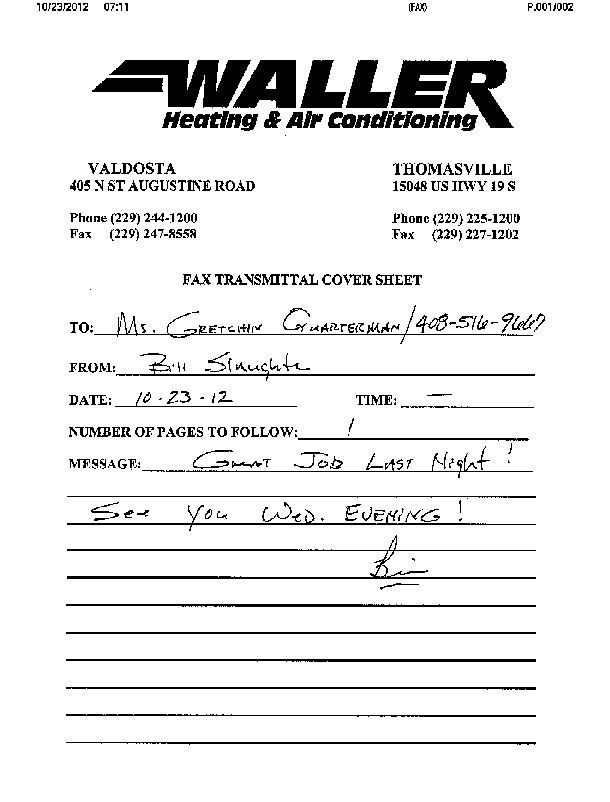 10/23/2012 07:11 (FAX) P.001/002
WALLER
Heating & Air Conditioning
VALDOSTA THOMASVILLE
405 N ST AUGUSTINE ROAD 15048 US HWY 19 S
Phone (229) 244-1200 Phone (229) 225-1200
Fax (229) 247-8558 Fax (229) 227-1202
FAX TRANSMITTAL COVER SHEET
TO: Ms. GRETCHIN QUARTERMAN/408-516-9667
FROM: Bill Slaughte
DATE: 10-23-12 TIME: —
NUMBER OF PAGES TO FOLLOW: 1
MESSAGE: GREAT JOB LAST Night!
See You Wed. EVENING!
Bill